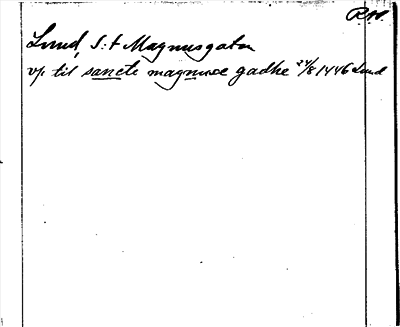 R.W.
Lund, S:t Magnusgatan
vp til sancte magnusæ gadhe 24/8 1446 Lund